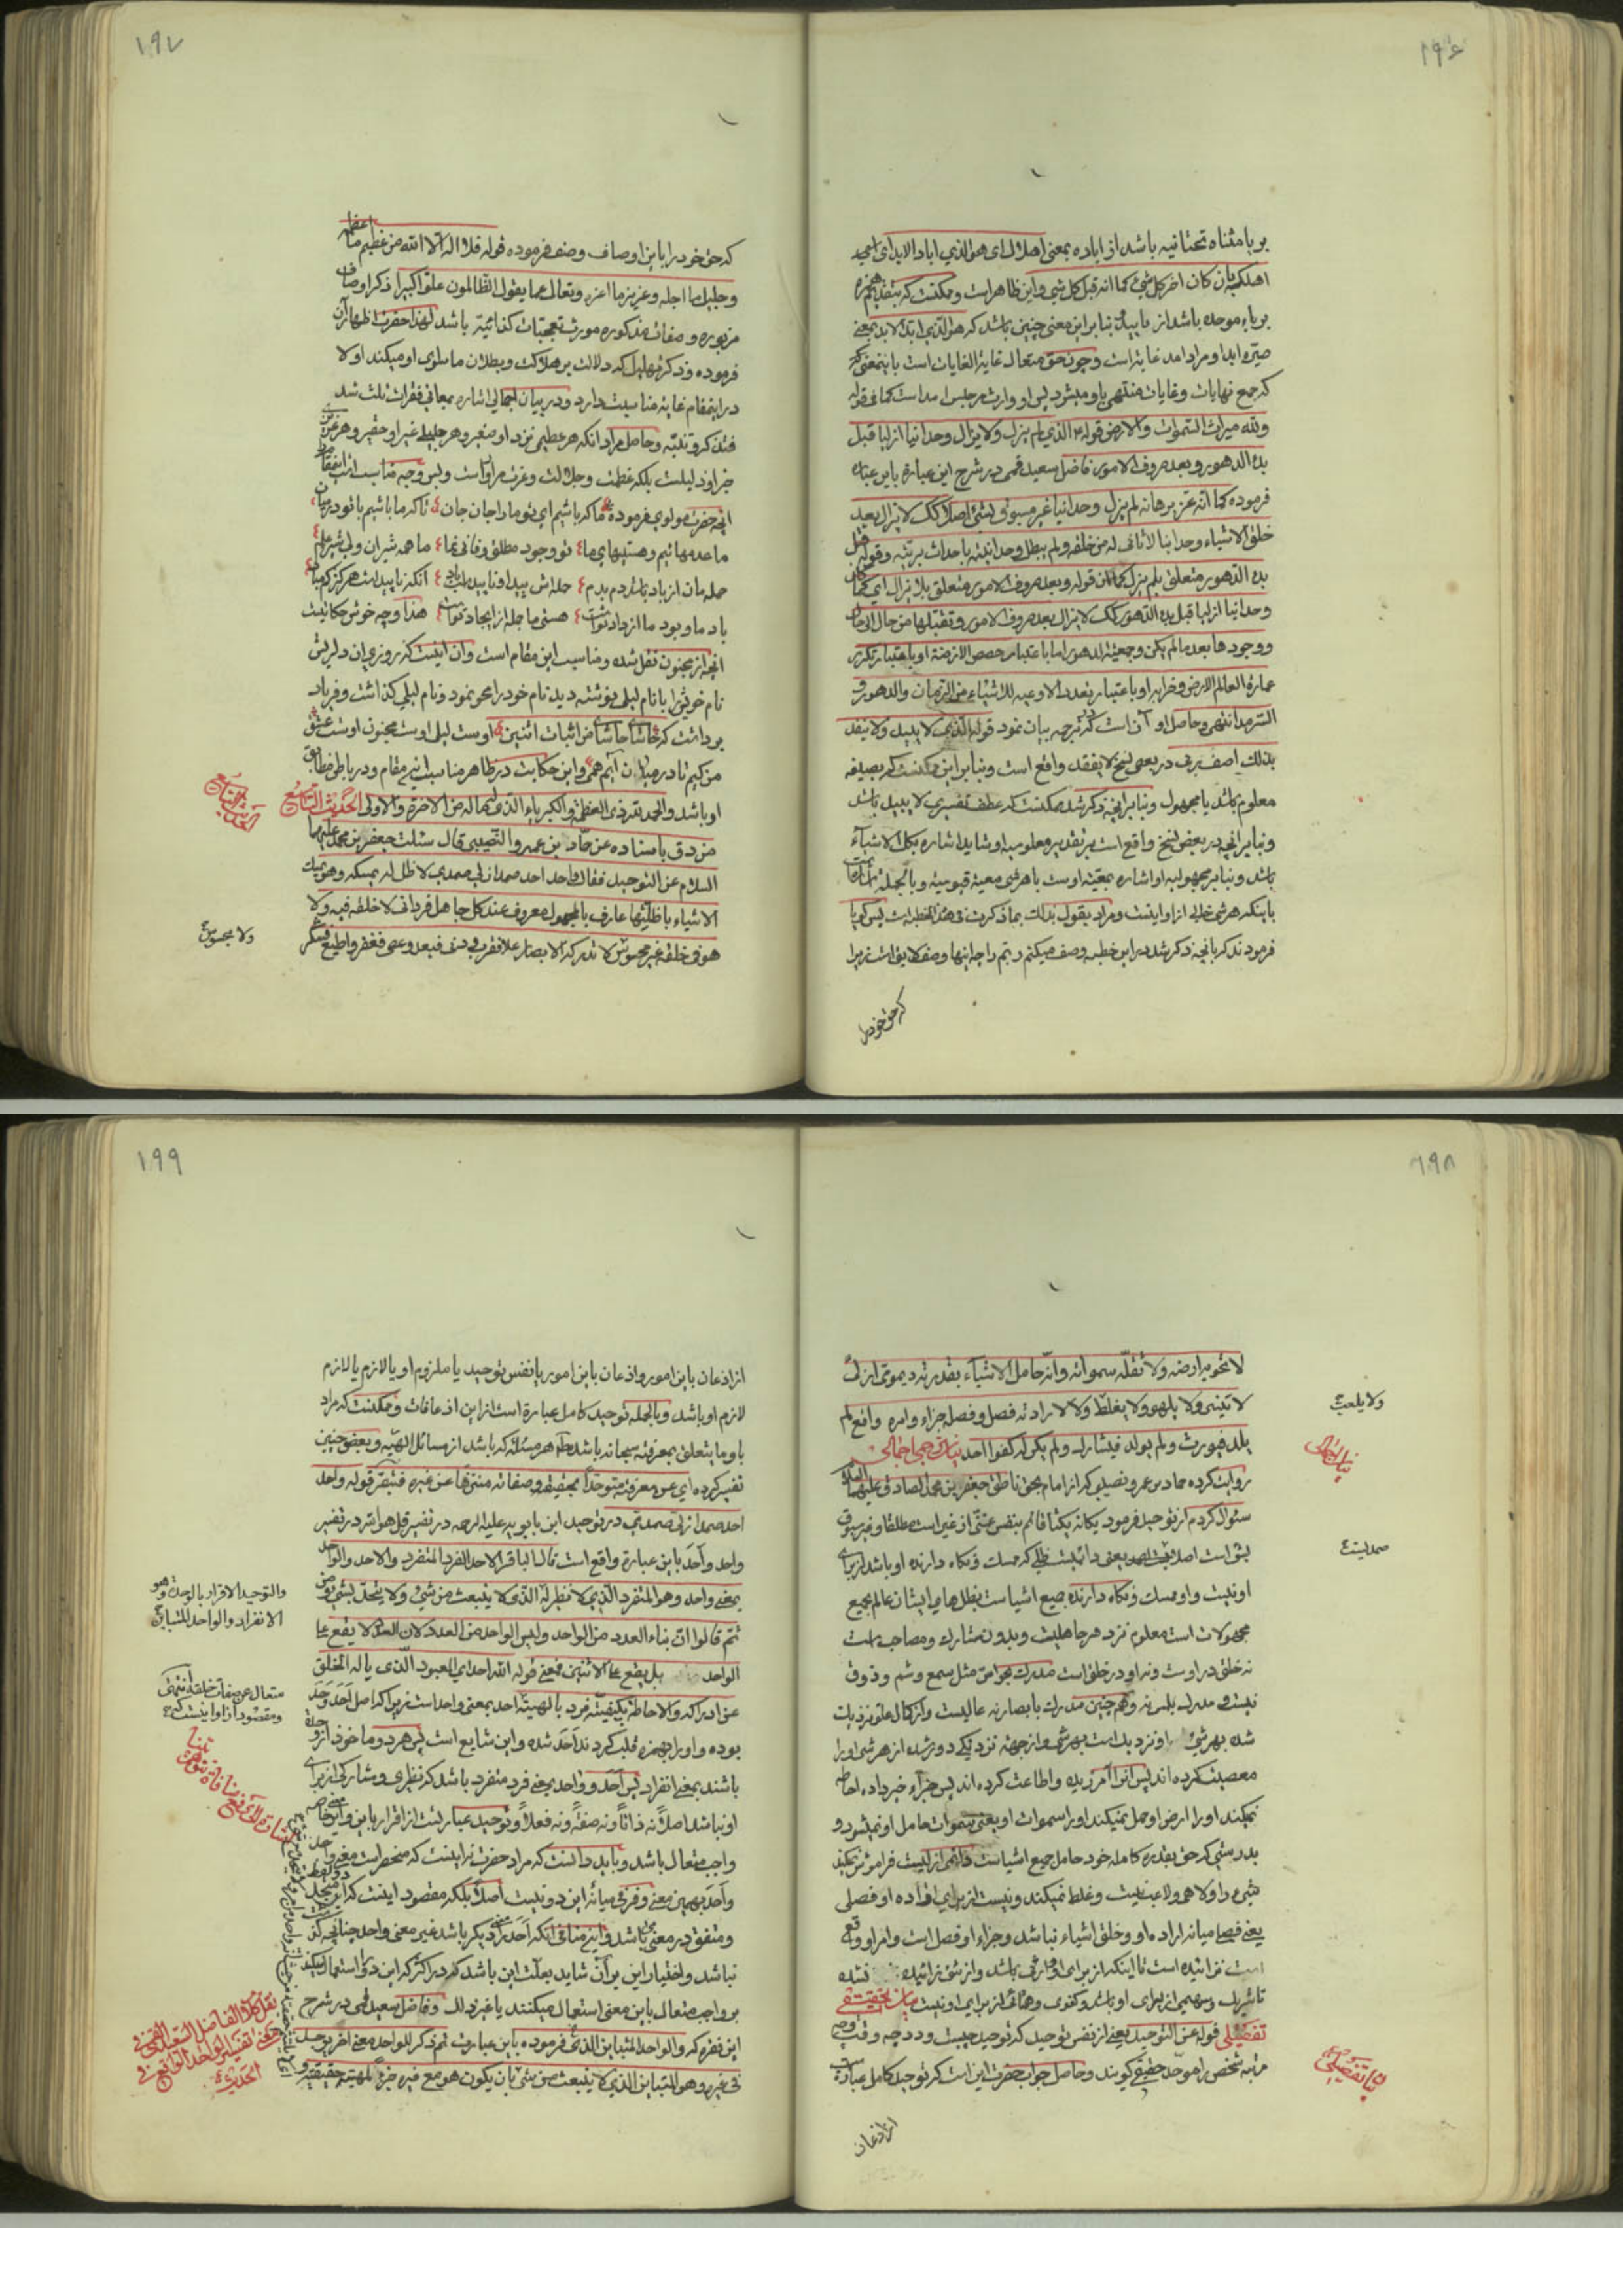 ۱۹۶
بر یا مثناه تحتانیه باشد از اباده بمعنی اهلاک ای هو الذی اباد الابد ای امجد
اهلکه بان کان اخر کل شیئ کما انه قبل کل شیئ و این ظاهر است و ممکنست که بتقدیم
بر باء موحده باشد از بنا بر این معنی چنین باشد که هو الذی ابد الابد یعنی
صیره ابدا و مراد امد غایة است و چون حق متعال غایة الغایات است باینمعنی
که جمیع نهایات و غایات منتهی باو میشود پس او وارث هر امد است کما فی قوله
ولله میراث السموات والارض قوله الذی لم یزل ولا یزال وحدانیا ازلیا قبل
بدء الدهور و بعد صروف الامور فاضل سعید قمی در شرح این عبارة باین عبارة
فرموده کما انه عز برهانه لم یزل وحدانیا غیر مسبوق بشیئ اصلا کک لا یزال بعد
خلق الاشیاء وحدانیا لا ثانی له من خلقه ولم یبطل وحدانیته باحداث بریته وقوله قبل
بدء الدهور متعلق بلم یزل کما ان قوله وبعد صروف الامور متعلق بلا یزال ای کما کان
وحدانیا ازلیا قبل بدء الدهور کک لا یزال بعد صروف الامور و تقلبها من حال الی حال
و وجودها بعد ما لم یکن وجمعیة الدهور اما باعتبار حصص الازمنة او باعتبار تکرر
عمارة العالم الارضی و خرابه او باعتبار تعدد الاوعیه للاشیاء من الزمان والدهور و
السرمد انتهی و حاصل او آن است که در ترجمه بیان نمود قوله الذی لا یبید ولا ینفد
بذلک اصف ربی در بعضی نسخ لا یفقد واقع است و بنا بر این ممکنست که بصیغه
معلوم باشد یا مجهول و بنا بر انچه ذکر شد ممکنست که عطف تفسیری لا یبید باشد
و بنا بر انچه در بعض نسخ واقع است بر تقدیر معلومیه او شاید اشاره بکل الاشیاء
باشد و بنا بر مجهولیه او اشاره بمعیة اوست با هر شیئ معیة قیومیة و بالجمله
باینکه هر شیئ خالی از او اینست و مراد بقول بذلک بما ذکرت فی هذا الخطبه است پس گویا
فرمودند که بانچه ذکر شد در این خطبه وصف میکنم ربم را چه اینها وصف لایق است زیرا
که حق خود را
۱۹۷
که حق خود را باین اوصاف وصف فرموده قوله فلا اله الا الله من عظیم ما اعظمه
و جلیل ما اجله و عزیز ما اعزه و تعالی عما یقول الظالمون علوا کبیرا ذکر اوصاف
مزبوره و صفات مذکوره مورث تعجبات باشد لهذا حضرت اظهار آن
فرموده و ذکر تهلیل که دلالت بر هلاکت و بطلان ما سوی او میکند اولا
در اینمقام غایة مناسبت دارد و در بیان اجمالی اشاره بمعانی فقرات ثلث شد
فتذکر و تنبّه و حاصل مراد انکه هر عظیمی نزد او صغیر و هر جلیلی غیر او حقیر و هر عزیزی
جز او ذلیلست بلکه عظمت و جلالت و عزت مر او راست و بس و چه مناسب است اینمقام
انچه حضرت مولوی فرموده ما که باشیم ای تو ما را جان جان تا که ما باشیم با تو در میان
ما عدمهائیم و هستیهای ما تو وجود مطلق و فانی نما ما همه شیران ولی شیر علم
حمله مان از باد باشد دم بدم حمله اش پیدا و نا پیداست باد انکه نا پیداست هرگز کم مباد
باد ما و بود ما از داد توست هستی ما جمله از ایجاد توست هذا و چه خوش حکایتیست
انچه از مجنون نقل شده و مناسب این مقام است و آن اینست که روزی ان دلریش
نام خویش را با نام لیلی نوشته دید نام خود را محو نمود و نام لیلی گذاشت و فریاد
برداشت که حاشا حاشا من اثبات اثنین اوست لیلی اوست مجنون اوست عشق
من کیم تا در میان آیم همی و این حکایت در ظاهر مناسب این مقام و در باطن مطابق
او باشد والحمد لله ذی العظمة والکبریاء الذی له الحمد الاخرة والاولی الحدیث التاسع
الحدیث التاسع
من دق باسناده عن حماد بن عمرو النصیبی قال سئلت جعفر بن محمد علیهما
السلام عن التوحید فقال واحد احد صمد ازلی صمدی لا ظل له یمسکه وهو یمسک
الاشیاء باظلتها عارف بالمجهول معروف عند کل جاهل فردانی لا خلقه فیه ولا
هو فی خلقه غیر محسوس لا تدرکه الابصار علا فقرب ودنی فبعد وعصی فغفر واطیع فشکر
ولا مجسوس
۱۹۸
لا تحویه ارضه ولا تقله سمواته وانه حامل الاشیاء بقدرته دیمومی ازلی
لا ینسی ولا یلهو ولا یغلط ولا لارادته فصل وفصله جزاء وامره واقع لم
ولا یلعب
یلد فیورث ولم یولد فیشارک ولم یکن له کفوا احد بیان ترجمه اجمالی
بیان اجمالی
روایت کرده حماد بن عمرو نصیبی که از امام بحق ناطق جعفر بن محمد الصادق علیهما السلام
سئوال کردم از توحید فرمود یگانه یکتا قائم بنفس غنی از غیر است مطلقا و غیر مسبوق
بشیئ است اصلا یعنی دائمیست ظلی که ممسک و نگاه دارنده او باشد از برای
صمدیست
او نیست و او ممسک و نگاه دارنده جمیع اشیاست بظلهای ایشان عالم بجمیع
مجهولات است معلوم نزد هر جاهلیست و بدون مشارک و مصاحب است
نه خلق در اوست و نه او در خلق است مدرک بحواس مثل سمع و شم و ذوق
نیست و مدرک بلمس نه و هم چنین مدرک بابصار نه عالیست و از کمال علو نزدیک
شده بهر شیئ او نزدیک است بهر شیئ و از جهة نزدیکی دور شده از هر شیئ او را
معصیت کرده اند پس انرا آمرزیده و اطاعت کرده اند پس جزاء خیر داده احاطه
نمیکند او را ارض او و حمل نمیکند او را سموات او یعنی سموات حامل او نمیشود و
بدرستی که حق بقدرة کامله خود حامل جمیع اشیاست دائمی ازلیست فراموش نمیکند
شیئ را و لاهی و لاعب نیست و غلط نمیکند و نیست از برای اراده او فصلی
یعنی فصلی میانه اراده او و خلق اشیاء نباشد و جزاء او فصل است و امر او واقع
است نزائیده است تا اینکه از برای او وارث باشد و از شیئ زائیده نشده
تا شریک و سهیمی از برای او باشد و کفوی و همتائی از برای او نیست بیان تحقیقی
تفصیلی قوله عن التوحید یعنی از نفس توحید که توحید چیست و در چه وقت و چه
مرتبه شخص را موحد حقیقی گویند و حاصل جواب حضرت این است که توحید کامل عبارت
بیان تفصیلی
از اذعان
۱۹۹
از اذعان باین امور و اذعان باین امور یا نفس توحید یا ملزوم او یا لازم یا لازم
لازم او باشد و بالجمله توحید کامل عبارة است از این اذعانات و ممکنست که مراد
باو ما یتعلق بمعرفته سبحانه باشد هر مسئله که باشد از مسائل الهیه و بعضی چنین
تفسیر کرده ای عن معرفته متوحدا بحقیقته وصفاته متنزها عن غیره قوله واحد
احد صمد ازلی صمدی در توحید ابن بابویه علیه الرحمه در تفسیر قل هو الله در تفسیر
واحد و احد باین عبارة واقع است قال الباقر الاحد الفرد المتفرد والاحد والواحد
بمعنی واحد وهو المتفرد الذی لا نظیر له الذی لا ینبعث من شیئ ولا یتحد بشیئ ومن
والتوحید الاقرار بالوحدة وهو
الانفراد والواحد المتباین
ثم قالوا ان بناء العدد من الواحد ولیس الواحد من العدد لان العدد لا یقع علی
الواحد بل یقع علی الاثنین فمعنی قوله الله احد ای المعبود الذی یاله الخلق
عن ادراکه والاحاطة بکیفیته فرد بالهیته احد بمعنی واحد است زیرا که اصل احد وحد
متعال عن صفات خلقه انتهی
و مقصود از او اینست که
بوده و او را بهمزه قلب کردند احد شده و این شایع است پس هر دو ماخوذ از وحدة
باشند بمعنی انفراد پس احد و واحد یعنی فرد متفرد باشد که نظیری و مشارکی از برای
او نباشد اصلا نه ذاتا و نه صفة و نه فعلا و توحید عبارتست از اقرار باین
واجب متعال باشد و باید دانست که مراد حضرت نه اینست که منحصر است معنی واحد
و احد بهمین معنی و فرقی میانه این دو نیست اصلا بلکه مقصود اینست که این
و متفق در معنی باشد و این منافی انکه احد را دیگر باشد غیر معنی واحد چنانچه
نباشد و اختیار این بر آن شاید بعلت این باشد که در اکثر که این دو را استعمال میکنند
بر واجب متعال باین معنی استعمال میکنند یا غیر ذلک و فاضل سعید قمی در شرح
این فقره که والواحد المتباین الذی فرموده باین عبارت ثم ذکر للواحد معنی اخر یوجد
فی غیره وهو المتباین الذی لا ینبعث من شیئ بان یکون هو مع غیره جزء لمهیته حقیقیة
نقل کلام الفاضل السعید القمی فی
معنی تفسیر الواحد الواقع فی
الحدیث